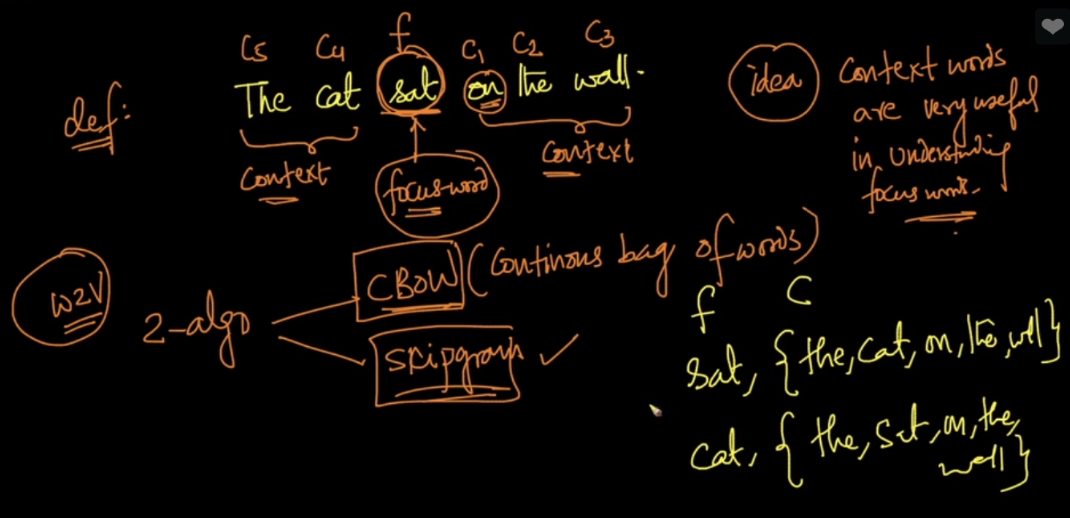 C5 C4 f C1 C2 C3
def: The cat sat on the wall.
context focus-word context
idea
Context words
are very useful
in understanding
focus words.
W2V 2-algo
CBOW (Continous bag of words)
Skipgram ✓
f C
sat, {the, cat, on, the, wall}
cat, {the, sat, on, the,
wall}